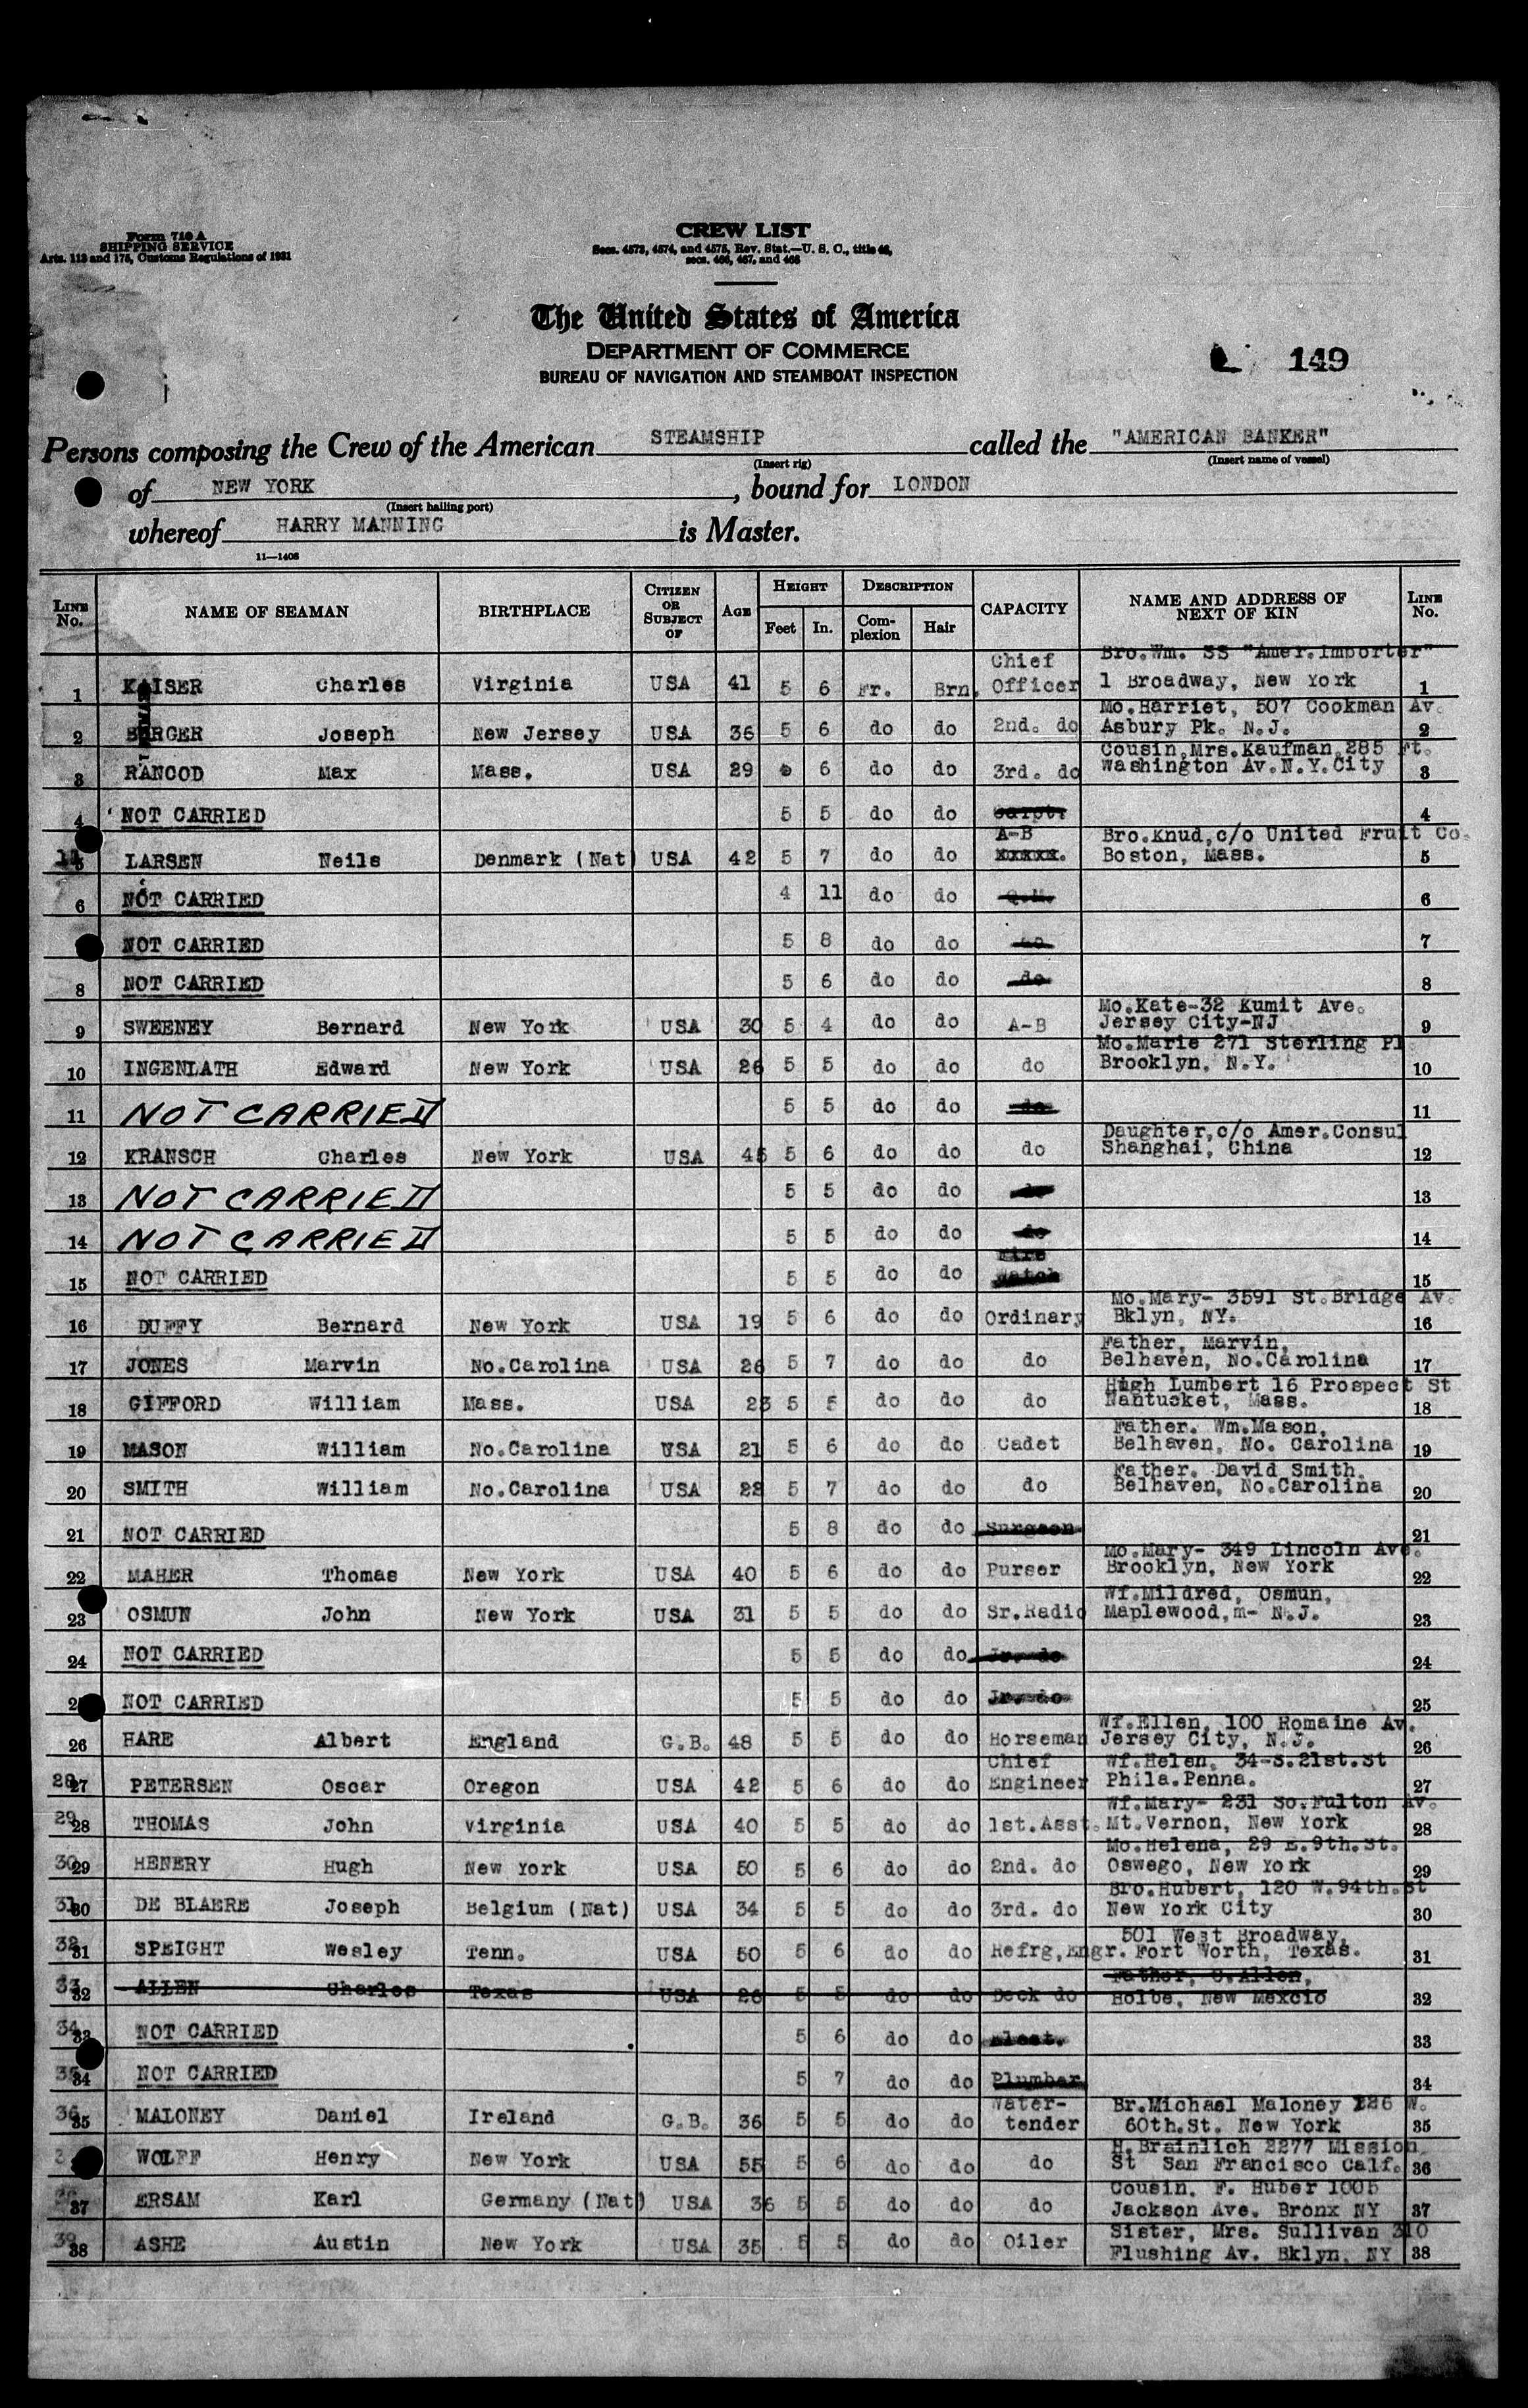 Form 710 A
SHIPPING SERVICE
Arts. 113 and 175, Customs Regulations of 1931
CREW LIST
Secs. 4573, 4574, and 4575, Rev. Stat.—U. S. C., title 46,
secs. 466, 467, and 468
The United States of America
DEPARTMENT OF COMMERCE
BUREAU OF NAVIGATION AND STEAMBOAT INSPECTION
149
Persons composing the Crew of the American STEAMSHIP called the "AMERICAN BANKER"
(Insert rig) (Insert name of vessel)
of NEW YORK, bound for LONDON
(Insert hailing port)
whereof HARRY MANNING is Master.
11—1408
LINE No. NAME OF SEAMAN BIRTHPLACE CITIZEN OR SUBJECT OF AGE HEIGHT Feet In. DESCRIPTION Complexion Hair CAPACITY NAME AND ADDRESS OF NEXT OF KIN LINE No.
1 KAISER Charles Virginia USA 41 5 6 Fr. Brn. Chief Officer Bro.Wm. SS "Amer.Importer" 1 Broadway, New York 1
2 BERGER Joseph New Jersey USA 36 5 6 do do 2nd. do Mo.Harriet, 507 Cookman Av. Asbury Pk. N.J. 2
3 RANCOD Max Mass. USA 29 6 do do 3rd. do Cousin,Mrs.Kaufman,285 Ft. Washington Av.N.Y.City 3
4 NOT CARRIED 5 5 do do Carpt. 4
5 LARSEN Neils Denmark (Nat) USA 42 5 7 do do A-B xxxxx. Bro.Knud,c/o United Fruit Co. Boston, Mass. 5
6 NOT CARRIED 4 11 do do Q.M. 6
NOT CARRIED 5 8 do do do 7
8 NOT CARRIED 5 6 do do do 8
9 SWEENEY Bernard New York USA 30 5 4 do do A-B Mo.Kate-32 Kumit Ave. Jersey City-NJ 9
10 INGENLATH Edward New York USA 26 5 5 do do do Mo.Marie 271 Sterling Pl Brooklyn, N.Y. 10
11 NOT CARRIED 5 5 do do do 11
12 KRANSCH Charles New York USA 45 5 6 do do do Daughter,c/o Amer.Consul Shanghai, China 12
13 NOT CARRIED 5 5 do do do 13
14 NOT CARRIED 5 5 do do do 14
15 NOT CARRIED 5 5 do do Fire Watch 15
16 DUFFY Bernard New York USA 19 5 6 do do Ordinary Mo.Mary- 3591 St.Bridge Av. Bklyn, NY. 16
17 JONES Marvin No.Carolina USA 26 5 7 do do do Father, Marvin, Belhaven, No.Carolina 17
18 GIFFORD William Mass. USA 23 5 5 do do do Hugh Lumbert 16 Prospect St Nantucket, Mass. 18
19 MASON William No.Carolina USA 21 5 6 do do Cadet Father. Wm.Mason, Belhaven, No. Carolina 19
20 SMITH William No.Carolina USA 22 5 7 do do do Father. David Smith, Belhaven, No.Carolina 20
21 NOT CARRIED 5 8 do do Surgeon 21
22 MAHER Thomas New York USA 40 5 6 do do Purser Mo.Mary- 349 Lincoln Ave. Brooklyn, New York 22
23 OSMUN John New York USA 31 5 5 do do Sr.Radio Wf.Mildred, Osmun, Maplewood,m- N.J. 23
24 NOT CARRIED 5 5 do do Jr. do 24
NOT CARRIED 5 5 do do Jr. do 25
26 HARE Albert England G.B. 48 5 5 do do Horseman Wf.Ellen, 100 Romaine Av. Jersey City, N.J. 26
28 27 PETERSEN Oscar Oregon USA 42 5 6 do do Chief Engineer Wf.Helen, 34-S.21st.St Phila.Penna. 27
29 28 THOMAS John Virginia USA 40 5 5 do do 1st.Asst. Wf.Mary- 231 So.Fulton Av. Mt.Vernon, New York 28
30 29 HENERY Hugh New York USA 50 5 6 do do 2nd. do Mo.Helena, 29 E.9th.St. Oswego, New York 29
31 30 DE BLAERE Joseph Belgium (Nat) USA 34 5 5 do do 3rd. do Bro.Hubert, 120 W.94th.St New York City 30
32 31 SPEIGHT Wesley Tenn. USA 50 5 6 do do Refrg,Engr. 501 West Broadway, Fort Worth, Texas. 31
33 32 ALLEN Charles Texas USA 26 5 5 do do Deck do Father, C.Allen, Holbe, New Mexcio 32
34 33 NOT CARRIED 5 6 do do Elect. 33
35 34 NOT CARRIED 5 7 do do Plumber 34
36 35 MALONEY Daniel Ireland G.B. 36 5 5 do do Water-tender Br.Michael Maloney 226 W. 60th.St. New York 35
WOLFF Henry New York USA 55 5 6 do do do H.Brainlich 2277 Mission St San Francisco Calf. 36
37 ERSAM Karl Germany (Nat) USA 36 5 5 do do do Cousin. F. Huber 1005 Jackson Ave. Bronx NY 37
39 38 ASHE Austin New York USA 35 5 5 do do Oiler Sister, Mrs. Sullivan 310 Flushing Av. Bklyn, NY 38